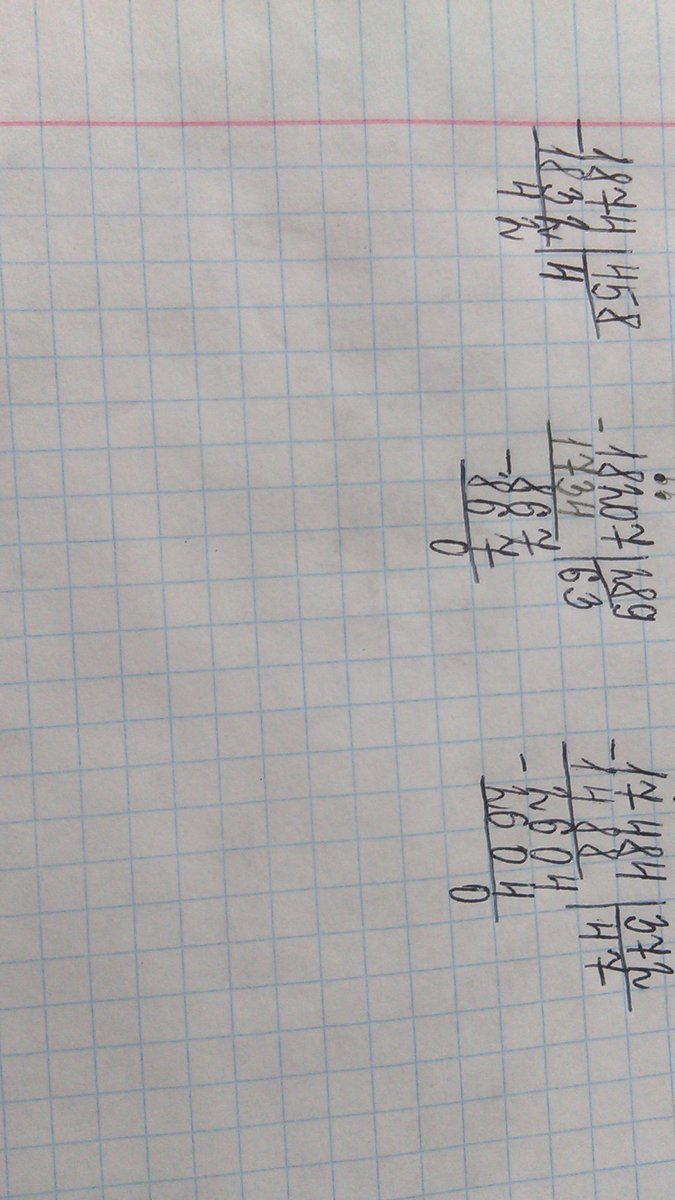 - 1874 | 458
1832 | 4
42
- 18207 | 289
1734 | 63
- 867
867
0
- 17484 | 372
1488 | 47
- 2604
2604
0